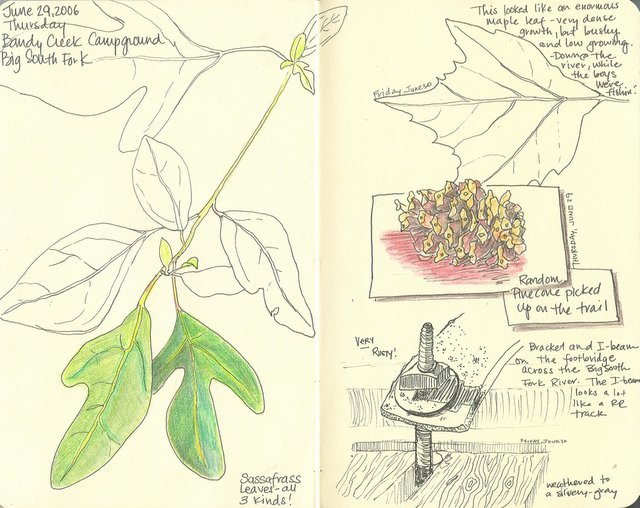 June 29, 2006
Thursday
Bandy Creek Campground
Big South Fork
Sassafrass
Leaves - all
3 kinds!
This looked like an enormous
maple leaf - very dense
growth, but bushy
and low growing.
- Down @ the
river, while
the boys
were
fishin'!
Friday, June 30
THURSDAY, JUNE 29
Random
Pinecone picked
up on the trail
VERY
RUSTY!
Bracket and I-beam
on the footbridge
across the Big South
Fork River. The I-beam
looks a lot
like a RR
track
FRIDAY, JUNE 30
weathered to
a silvery-gray